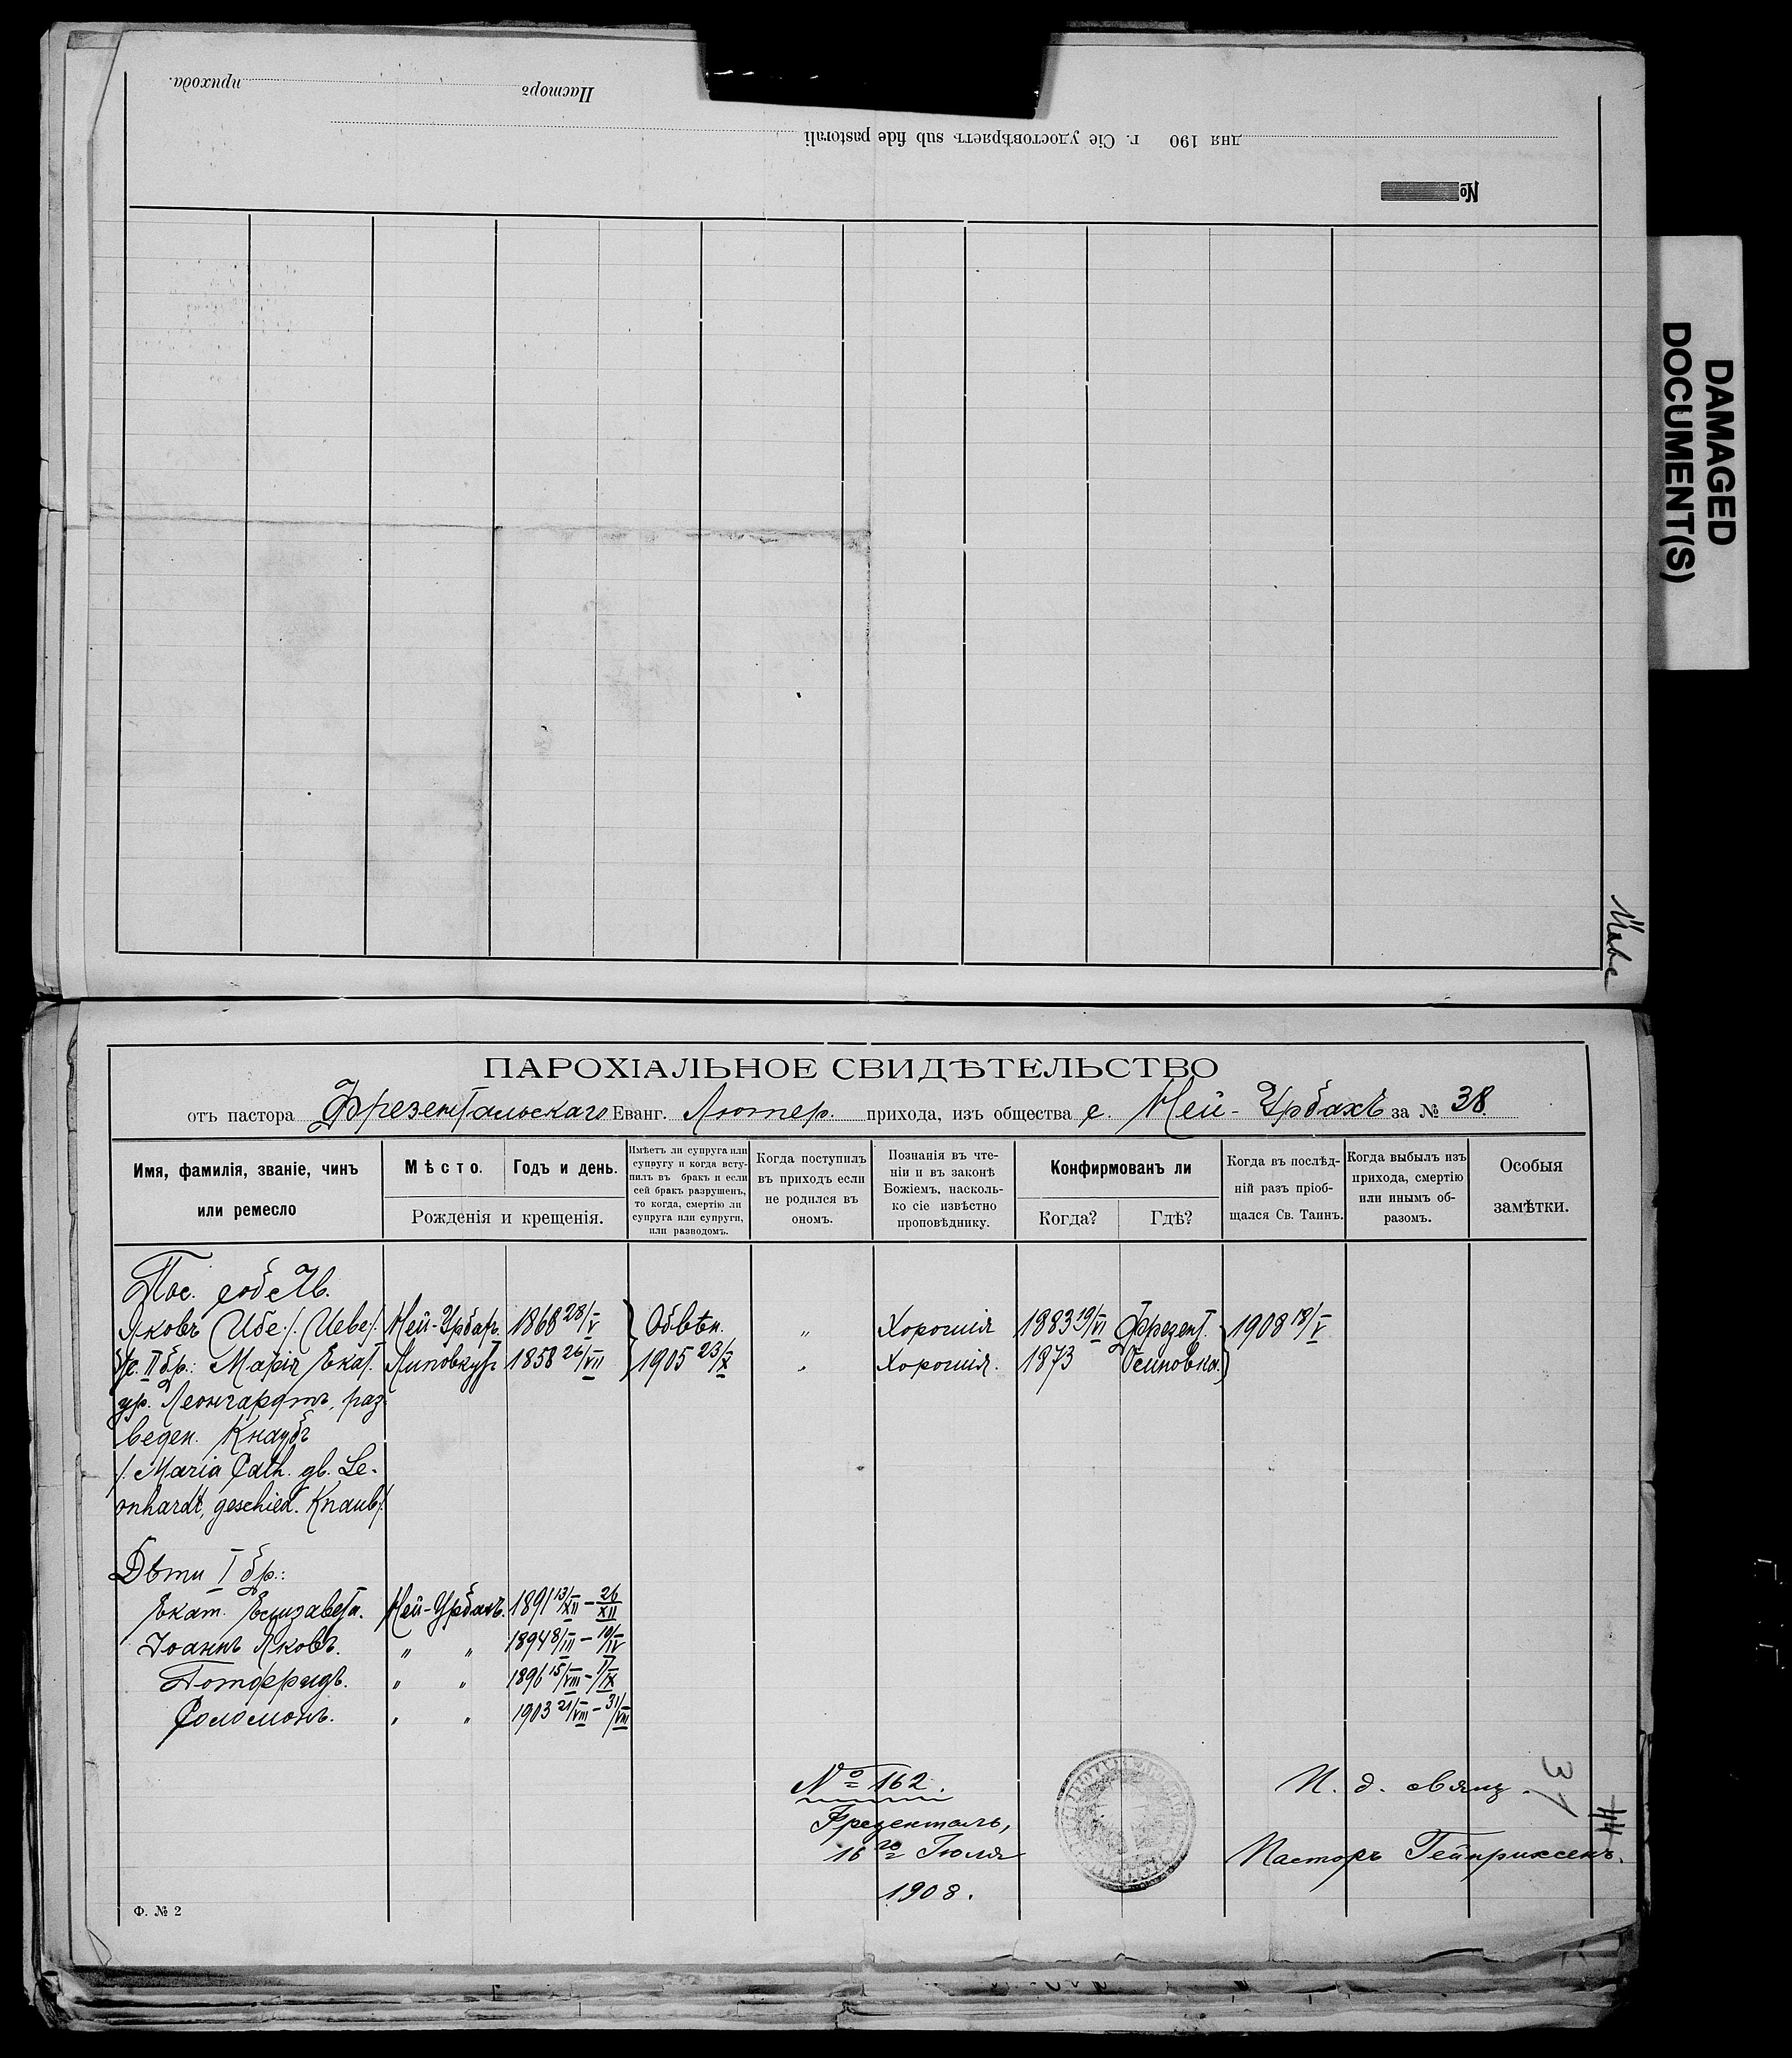 прихода.
Пасторъ
дня 190 г. Сіе удостовѣряетъ sub fide pastorali
№
DAMAGED
DOCUMENT(S)
ПАРОХІАЛЬНОЕ СВИДѢТЕЛЬСТВО
отъ пастора Фрезентальскаго Еванг. Лютер. прихода, изъ общества с. Ней-Урбахъ за № 38.
Имя, фамилія, званіе, чинъ или ремесло
Мѣсто.
Годъ и день.
Рожденія и крещенія.
Имѣетъ ли супруга или
супругу и когда всту-
пилъ въ бракъ и если
сей бракъ разрушенъ,
то когда, смертію ли
супруга или супруги,
или разводомъ.
Когда поступилъ
въ приходъ если
не родился въ
ономъ.
Познанія въ чте-
ніи и въ законѣ
Божіемъ, насколь-
ко сіе извѣстно
проповѣднику.
Конфирмованъ ли
Когда?
Гдѣ?
Когда въ послѣд-
ній разъ пріоб-
щался Св. Таинъ.
Когда выбылъ изъ
прихода, смертію
или инымъ об-
разомъ.
Особыя
замѣтки.
Пос. собств.
Яковъ Ибе /. Uebe /. Ней-Урбах. 1868 28/V Обвѣн. " Хорошія 1883 19/VI Фрезент. 1908 18/V
Ж. II бр.: Марія Екат. Липовкутъ 1858 26/VII 1905 23/X " Хорошія. 1873 Осиновка.
ур. Леонгардтъ, раз-
веден. Кнаубъ
/. Maria Cath. gb. Le-
onhardt, geschied. Knaub /.
Дѣти I бр.:
Екат. Елизавета. Ней-Урбахъ. 1891 13/XII - 26/XII
Іоаннъ Яковъ. " " 1894 8/III - 10/IV
Готфридъ. " " 1896 15/VIII - 1/IX
Соломонъ. " " 1903 21/VIII - 31/VIII
№ 162.
Фрезенталь,
16го Іюля
1908.
И. д. свящ.
Пасторъ Гейнриксенъ.
31
44
Ф. № 2